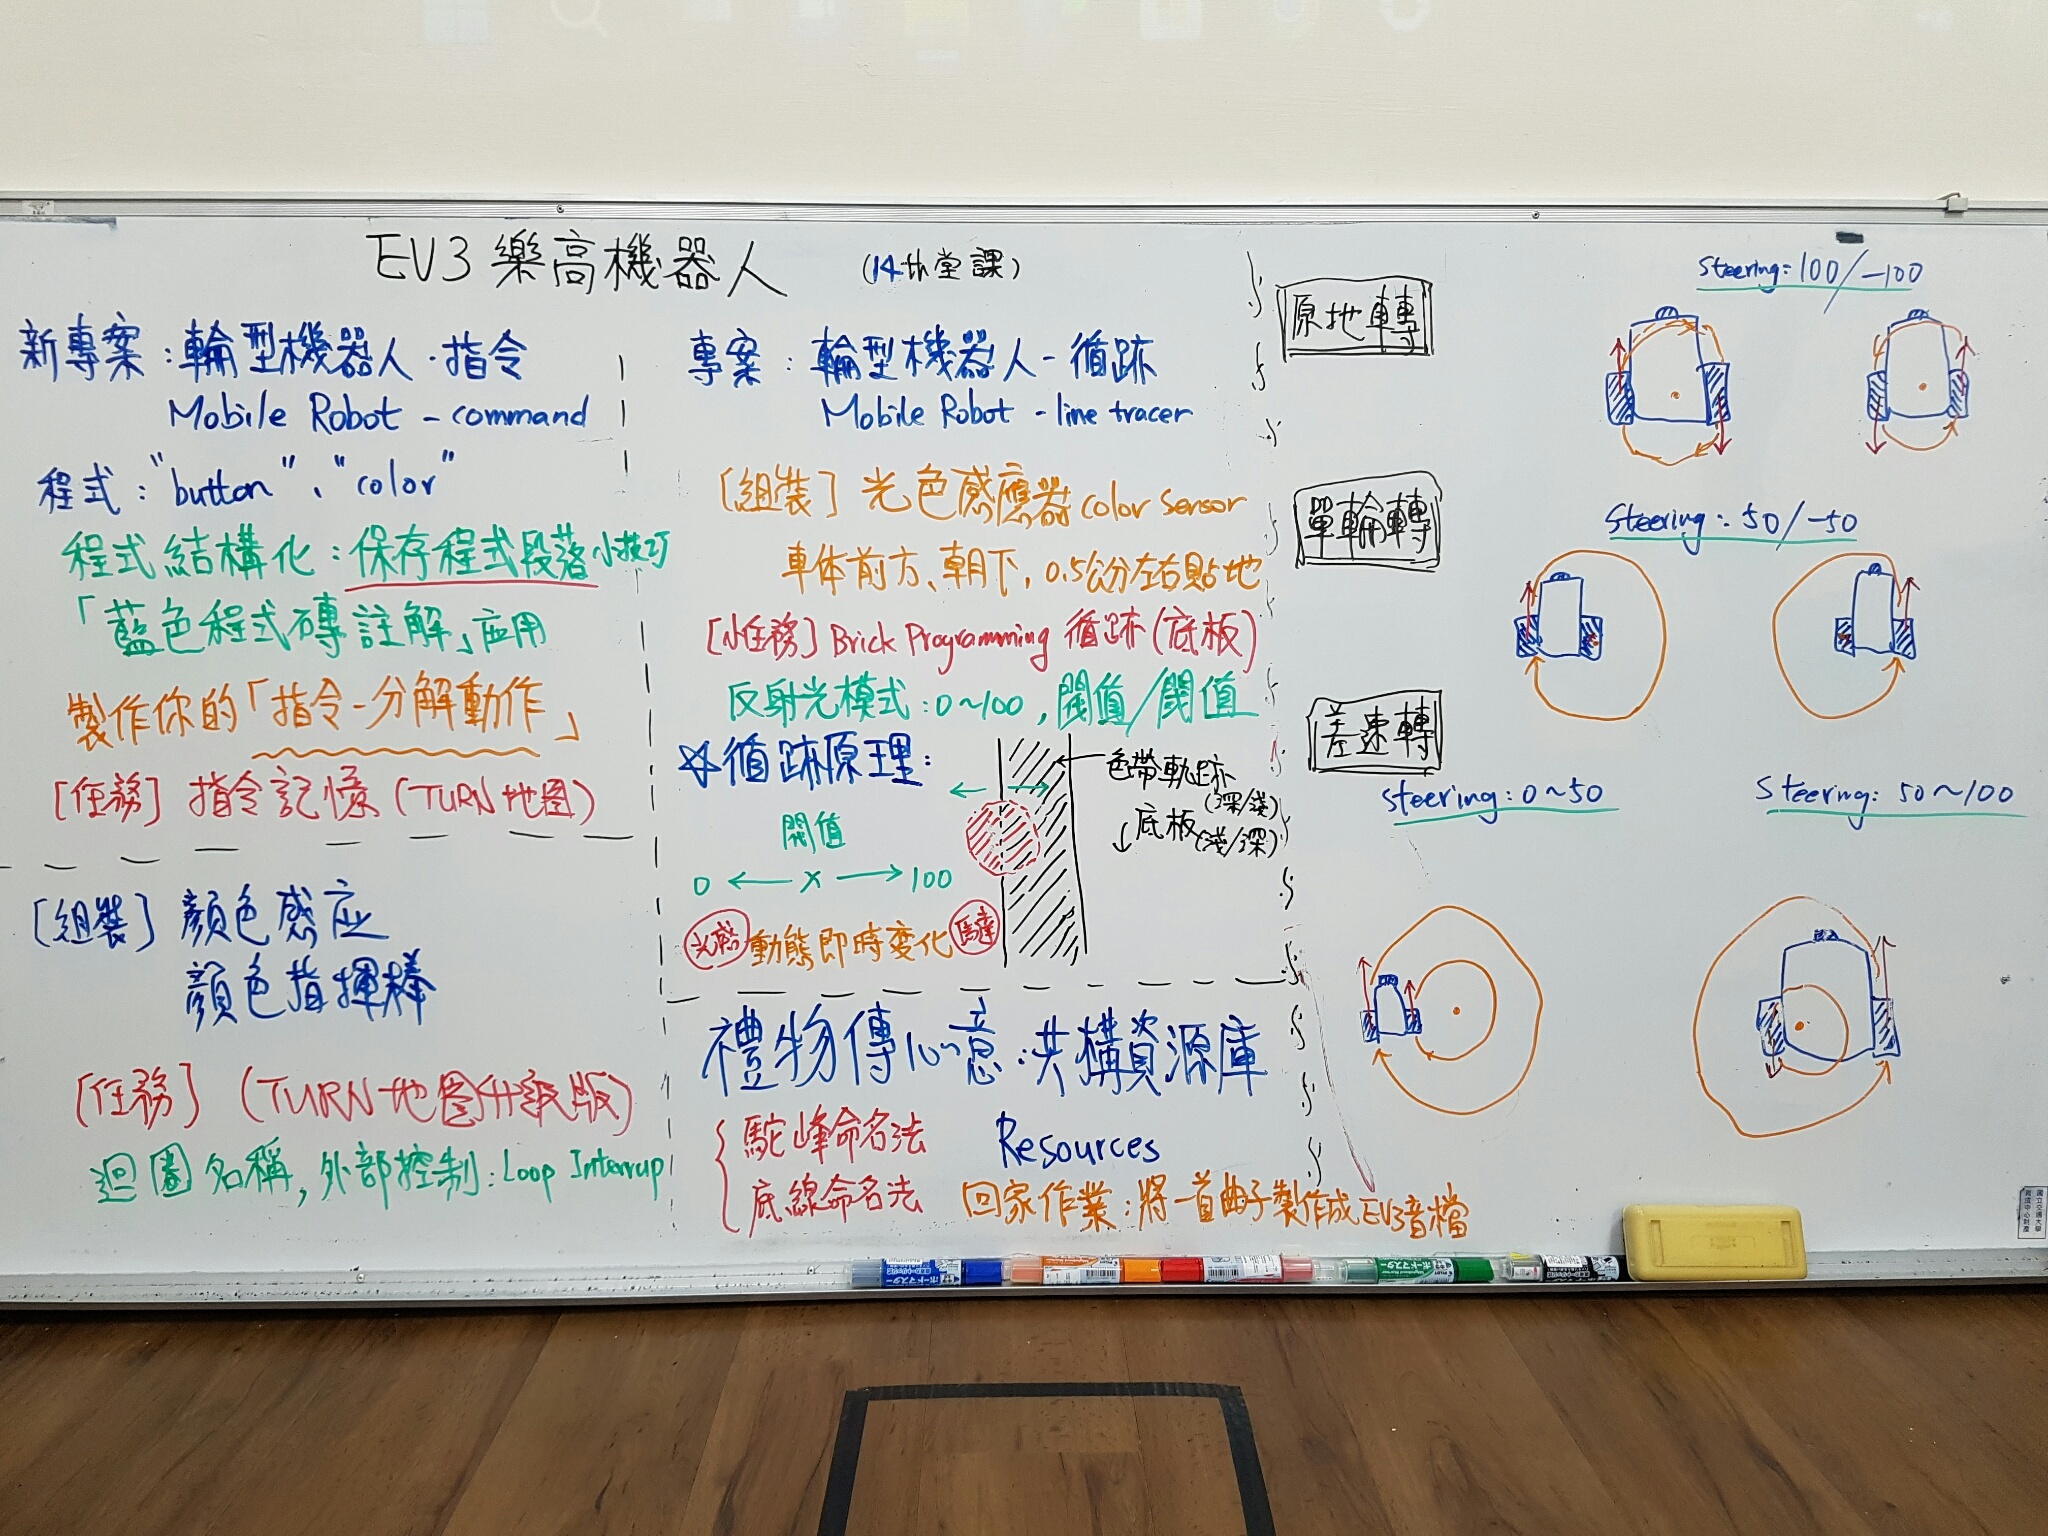 EV3 樂高機器人 (14th堂課)
新專案：輪型機器人・指令
Mobile Robot - command
程式："button"、"color"
程式結構化：保存程式段落小技巧
「藍色程式磚註解」应用
製作你的「指令-分解動作」
[任務] 指令記憶 (TURN地圖)
[組裝] 顏色感应
顏色指揮棒
[任務] (TURN地圖升級版)
迴圈名稱, 外部控制: Loop Interrup
專案：輪型機器人-循跡
Mobile Robot - line tracer
[組裝] 光色感應器 color sensor
車体前方、朝下, 0.5公分左右貼地
[小任務] Brick Programming 循跡(底板)
反射光模式: 0~100, 閥值/閾值
☆循跡原理:
色帶軌跡
(深/淺)
底板(淺/深)
閥值
0 ← x → 100
光感 動態即時变化 馬達
禮物傳心意:共構資源庫
駝峰命名法
Resources
底線命名法
回家作業:將一首曲子製作成EV3音檔
原地轉
Steering: 100/-100
單輪轉
Steering: 50/-50
差速轉
Steering: 0~50
Steering: 50~100